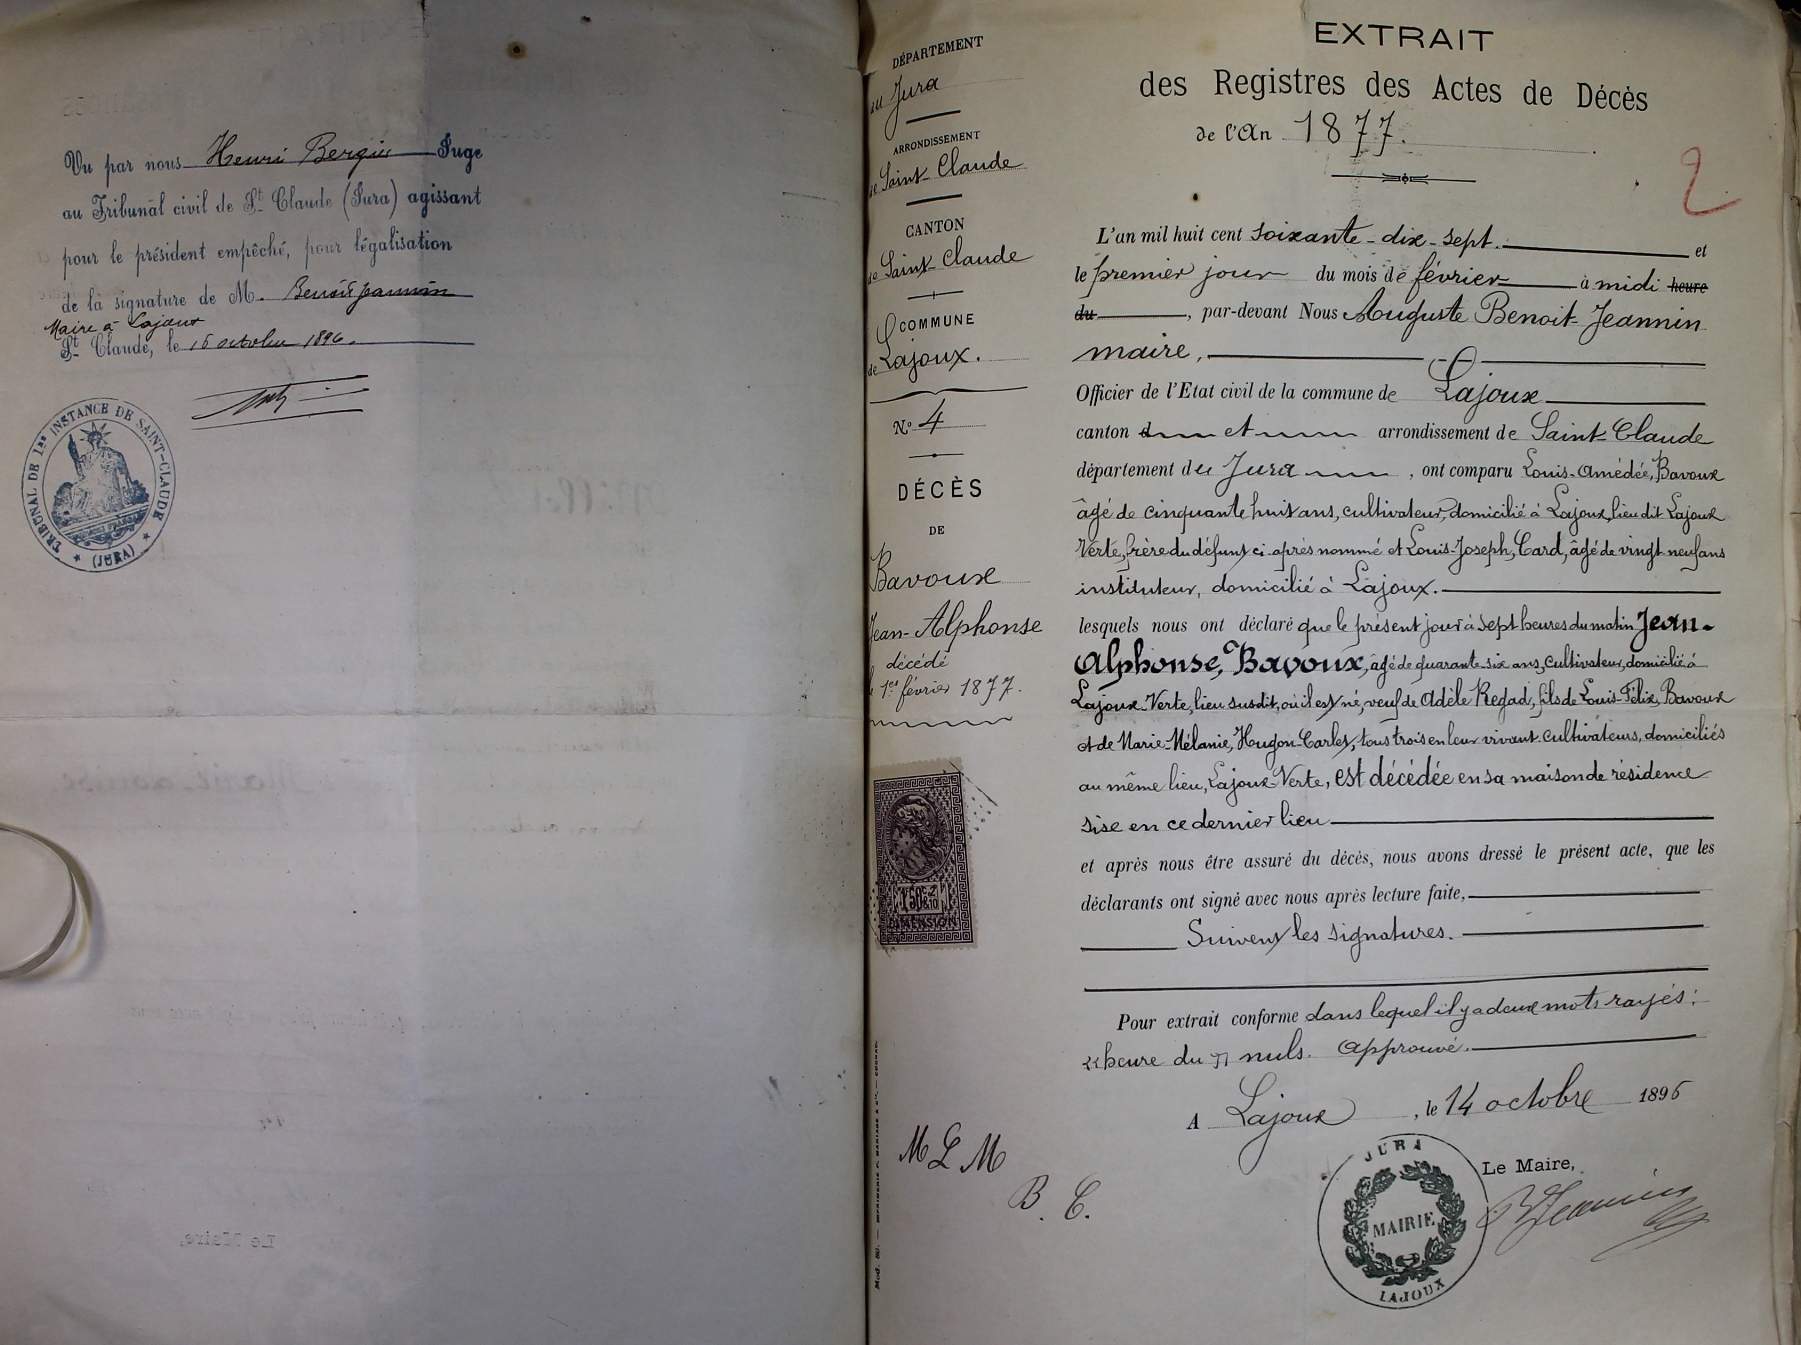 Vu par nous Henri Bergier Juge
au Tribunal civil de St Claude (Jura) agissant
pour le président empêché, pour légalisation
de la signature de M. Benoit Jeannin
Maire à Lajoux
St Claude, le 15 octobre 1896.
TRIBUNAL DE 1RE INSTANCE DE SAINT-CLAUDE
★ (JURA) ★
DÉPARTEMENT
du Jura
ARRONDISSEMENT
de Saint-Claude
CANTON
de Saint-Claude
COMMUNE
de Lajoux.
No 4
DÉCÈS
DE
Bavoux
Jean-Alphonse
décédé
le 1er février 1877.
1F 50C
DIMENSION
M L M
B. C.
EXTRAIT
des Registres des Actes de Décès
de l'An 1877.
2
L'an mil huit cent soixante-dix-sept. et
le premier jour du mois de février à midi heure
du, par-devant Nous Auguste Benoit-Jeannin
maire,
Officier de l'Etat civil de la commune de Lajoux
canton d et arrondissement de Saint-Claude
département du Jura, ont comparu Louis-Amédée, Bavoux
âgé de cinquante huit ans, cultivateur, domicilié à Lajoux, lieu dit Lajoux
Verte, frère du défunt ci-après nommé et Louis-Joseph, Card, âgé de vingt neuf ans
instituteur, domicilié à Lajoux.
lesquels nous ont déclaré que le présent jour à sept heures du matin Jean-
Alphonse, Bavoux, âgé de quarante-six ans, cultivateur, domicilié à
Lajoux-Verte, lieu susdit, où il est né, veuf de Adèle Regad, fils de Louis-Félix, Bavoux
et de Marie-Mélanie, Hugon-Carlet, tous trois en leur vivant cultivateurs, domiciliés
au même lieu, Lajoux-Verte, est décédée en sa maison de résidence
sise en ce dernier lieu
et après nous être assuré du décès, nous avons dressé le présent acte, que les
déclarants ont signé avec nous après lecture faite,
Suivent les signatures.
Pour extrait conforme dans lequel il y a deux mots rayés:
"heure du" nuls. Approuvé.
A Lajoux, le 14 octobre 1896
Le Maire,
B Jeannin
JURA
MAIRIE
LAJOUX